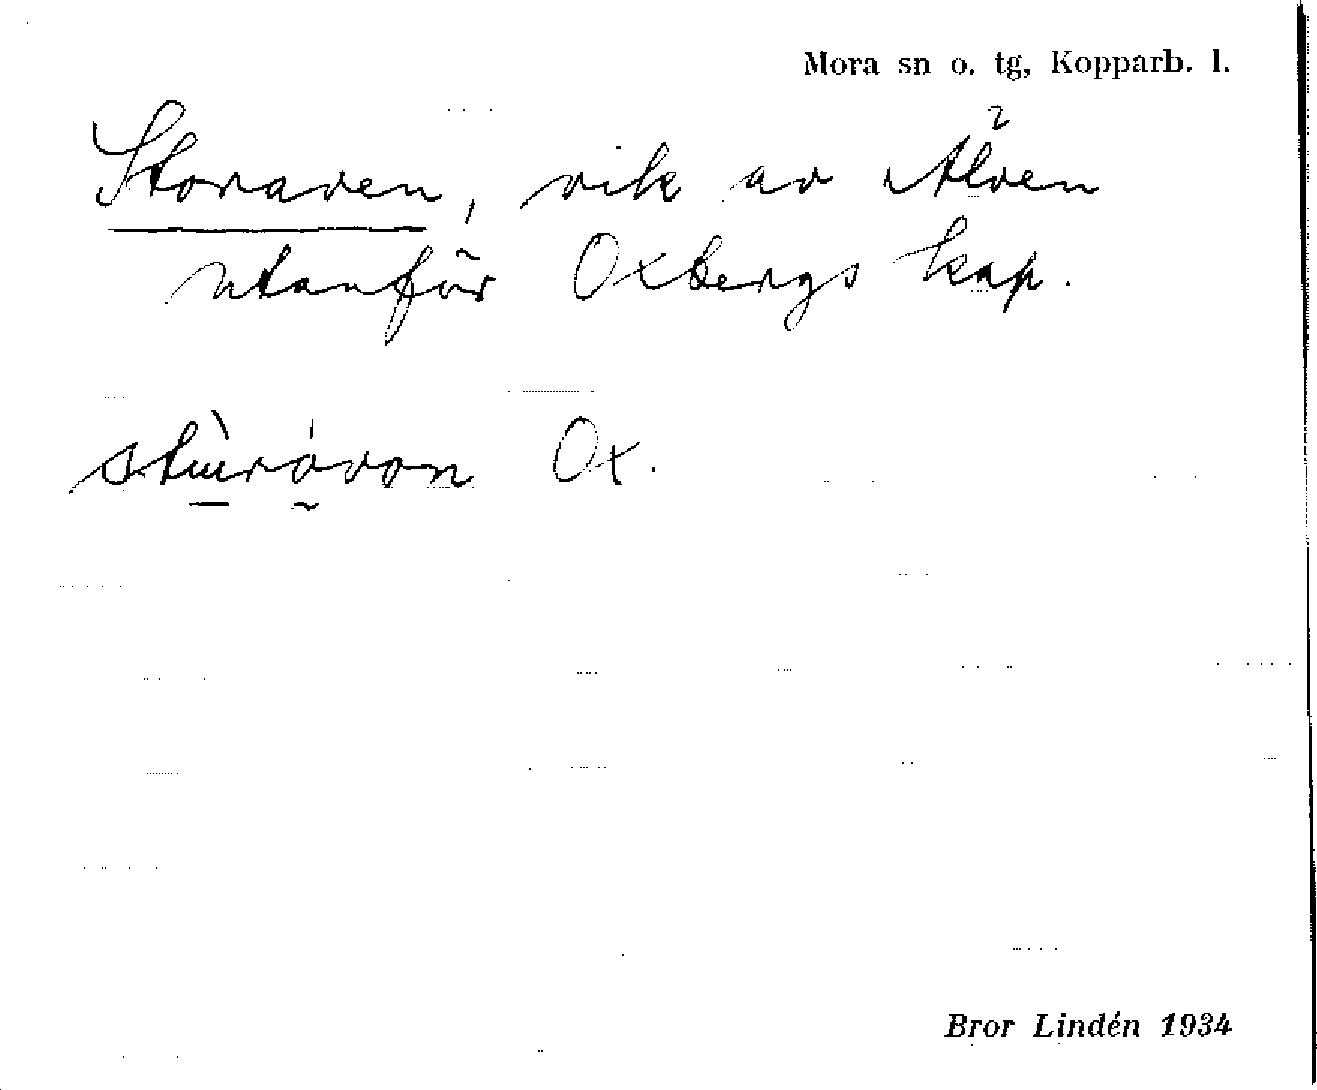 Mora sn o. tg, Kopparb. l.
Storaven, vik av Älven
utanför Oxbergs kap.
Ox.
Bror Lindén 1934